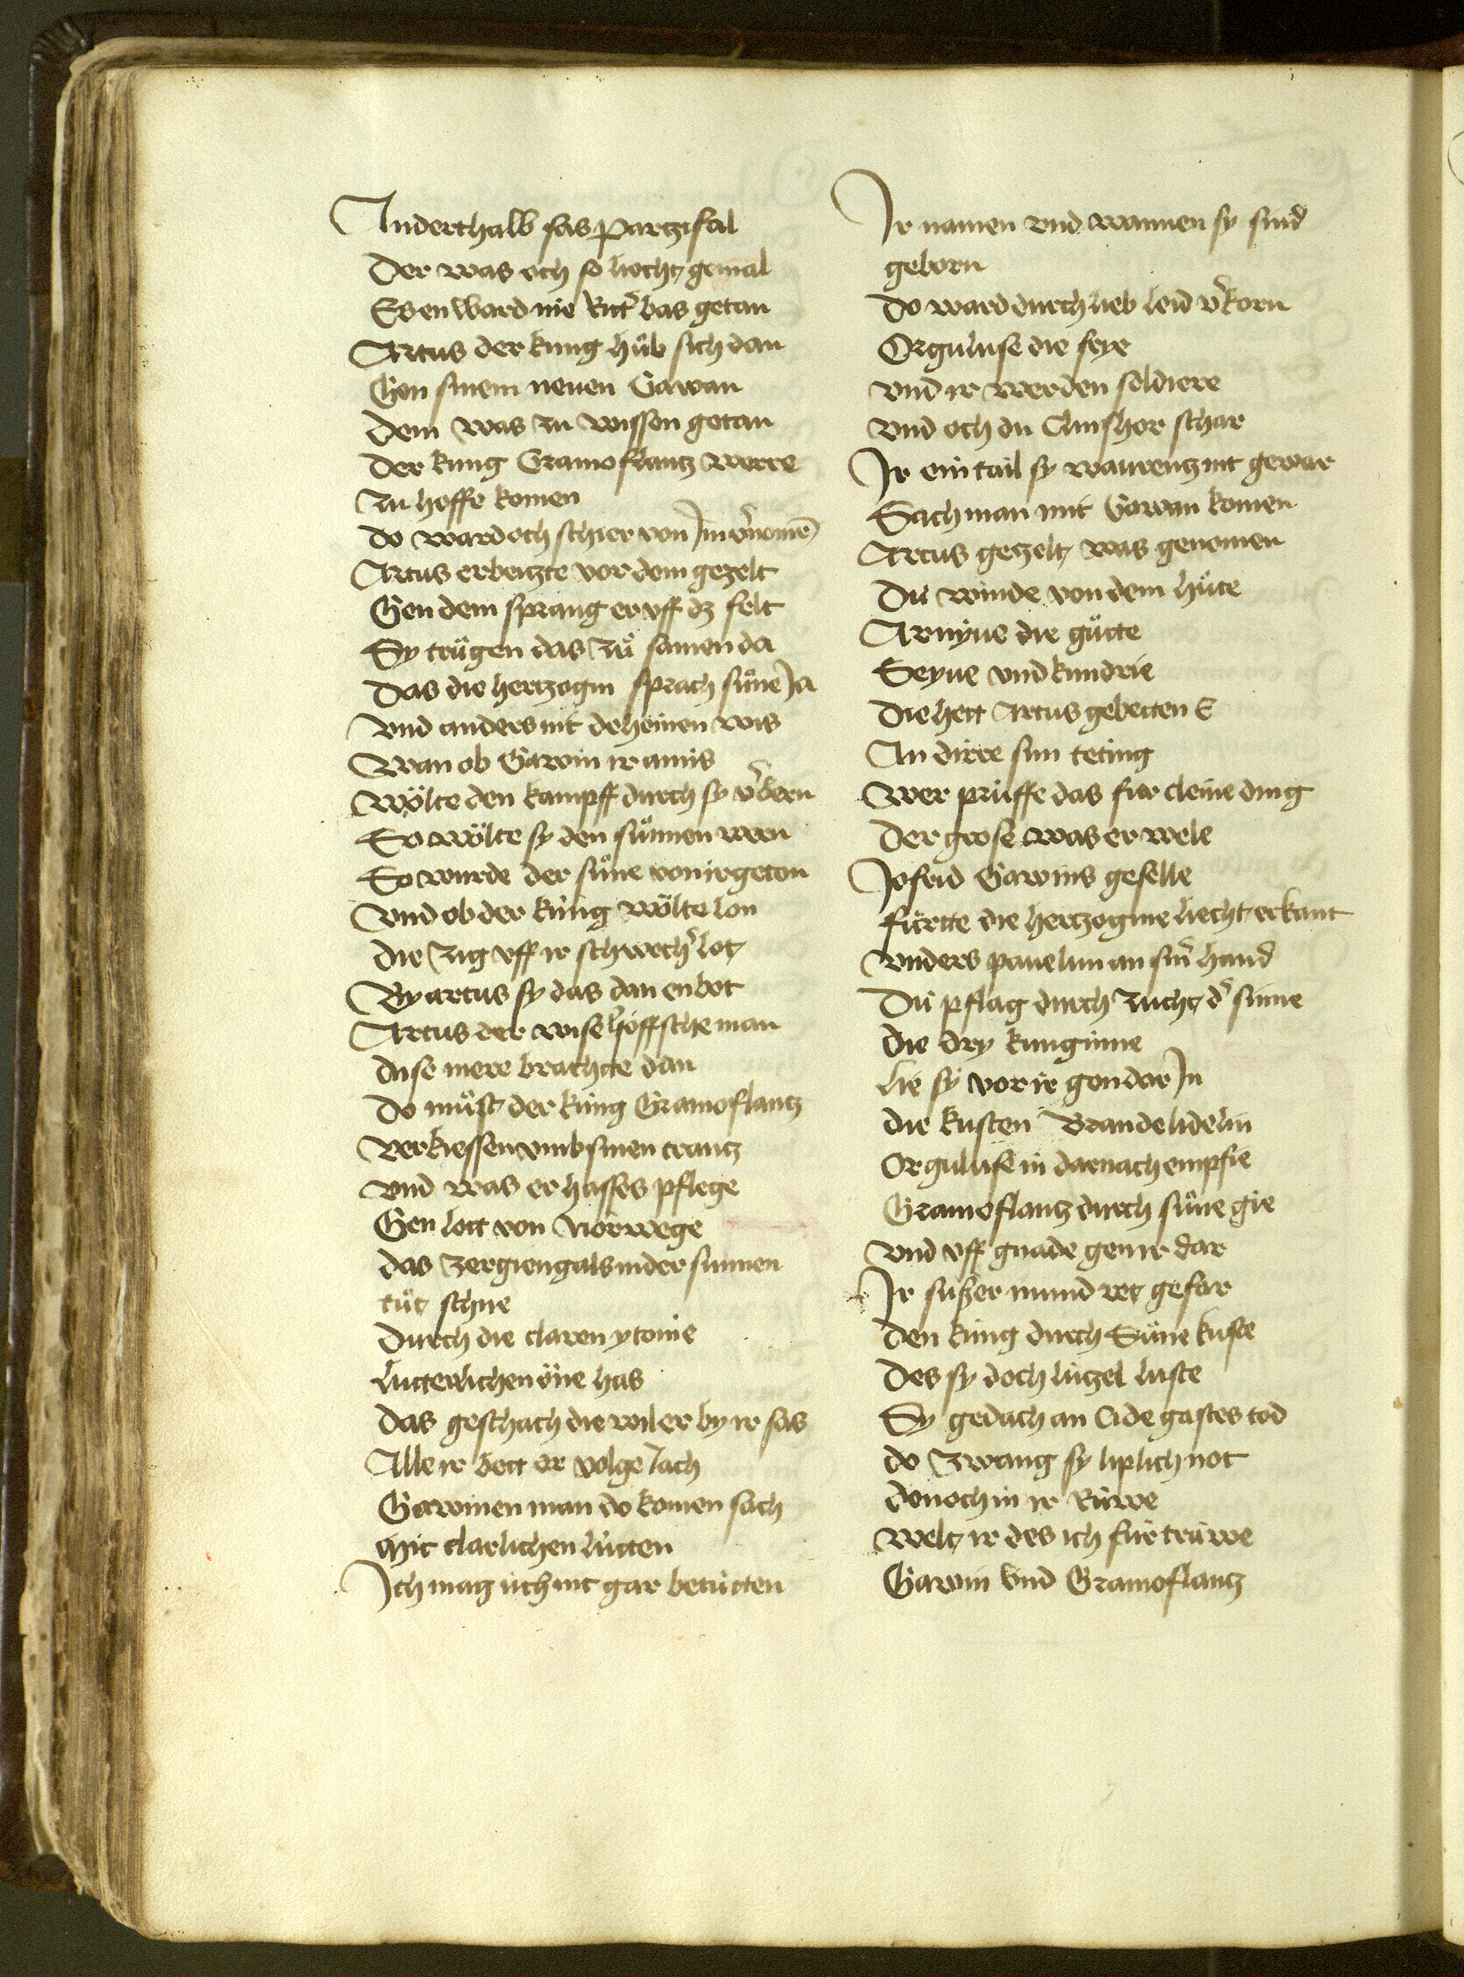 Anderthalb sas partzifal
Der was och so liecht gemal
Es enward nie Rittˀ bas getan
Artus der kung hůb sich dan
Gen sinem neuen Gawan
Dem was zu wissen getan
Der kung Gramoflantz werre
zu hoffe komen
do ward och schier von Im vˀnomē
Artus erbeitzte vor dem gezelt
Gen dem sprang er vff dz felt
Sy trůgen das zů samen da
Das die hertzogin sprach sůne Ja
vnd anders nit deheinen wis
Wan ob Gawin ir amis
Wölte den kampff durch sy vˀbern
So wölte sy den sůnnen wern
So wurde der sůne von ir getan
Vnd ob der kúng wölte lon
Die zig vff ir schwechˀ lot
By artus sy das dan enbot
Artus der wise höffsche man
dise mere brachtte dan
do můst der kúng Gramoflantz
verkiessen vmb sinen crantz
vnd was er hasses pflege
Gen lott von Norwege
das zergieng als in der sunnen
tůt schne
Durch die claren ytonie
Lutterlichen öne has
das geschach die wil er by ir sas
Alle ir bett er volge Jach
Gawinen man do komen sach
Mit clarlichen lútten
Ich mag úch nit gar betútten
Ir namen vnd wannen sy sind
geborn
do ward durch lieb leid vˀkorn
Orguluse die feye
vnd ir werden soldiere
vnd och du Clinshor schar
Ir ein tail sy warentz nit gewar
Sach man mit Gawan komen
Artus gezelt was genomen
Dú winde von dem hůte
Arnyue die gůtte
Seyue vnd kundrie
Die hett Artus gebetten E
An dirre sun teting
Wer prúffe das fúr cleine ding
Der grose was er wele
Jofrid Gawins geselle
fúrtte die hertzogine liecht erkant
vnders pauelun an sinˀ hand
Dú pflag durch zucht dˀ sinne
die dry kunginne
Lie sy vor ir gon dar In
die kusten Brandelidelin
Orguluse in darnach empfie
Gramoflantz durch sůne gie
vnd vff gnade gen ir dar
Ir suszer mund rot gefar
den kúng durch Sůne kuste
Des sy doch lútzel luste
Sy gedach an Cidegastes tod
do zwang sy liplich not
dennoch in ir Rúwe
Welt ir des ich fúr trúwe
Gawin vnd Gramoflantz